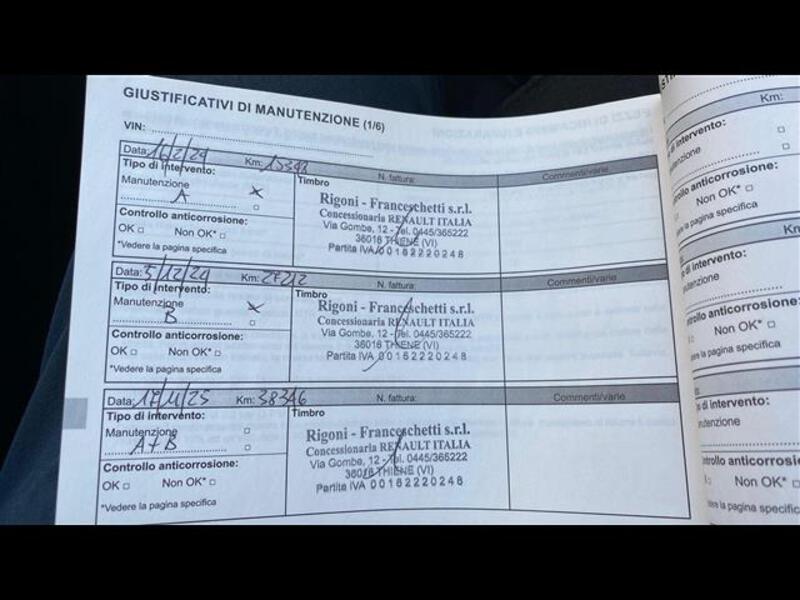 GIUSTIFICATIVI DI MANUTENZIONE (1/6)
VIN:
Data: 16/2/24 Km: 13398 N. fattura: Commenti/varie
Tipo di intervento:
Manutenzione
A
Controllo anticorrosione:
OK Non OK*
*Vedere la pagina specifica
Timbro
Rigoni - Franceschetti s.r.l.
Concessionaria RENAULT ITALIA
Via Gombe, 12 - Tel. 0445/365222
36016 THIENE (VI)
Partita IVA 00162220248
Data: 5/12/24 Km: 27212 N. fattura: Commenti/varie
Tipo di intervento:
Manutenzione
B
Controllo anticorrosione:
OK Non OK*
*Vedere la pagina specifica
Timbro
Rigoni - Franceschetti s.r.l.
Concessionaria RENAULT ITALIA
Via Gombe, 12 - Tel. 0445/365222
36016 THIENE (VI)
Partita IVA 00162220248
Data: 17/11/25 Km: 38346 N. fattura: Commenti/varie
Tipo di intervento:
Manutenzione
A+B
Controllo anticorrosione:
OK Non OK*
*Vedere la pagina specifica
Timbro
Rigoni - Franceschetti s.r.l.
Concessionaria RENAULT ITALIA
Via Gombe, 12 - Tel. 0445/365222
36016 THIENE (VI)
Partita IVA 00162220248
Km:
intervento:
Non OK*
la pagina specifica
intervento:
anticorrosione:
Non OK*
la pagina specifica
di intervento:
anticorrosione
Non OK*
la pagina specifica